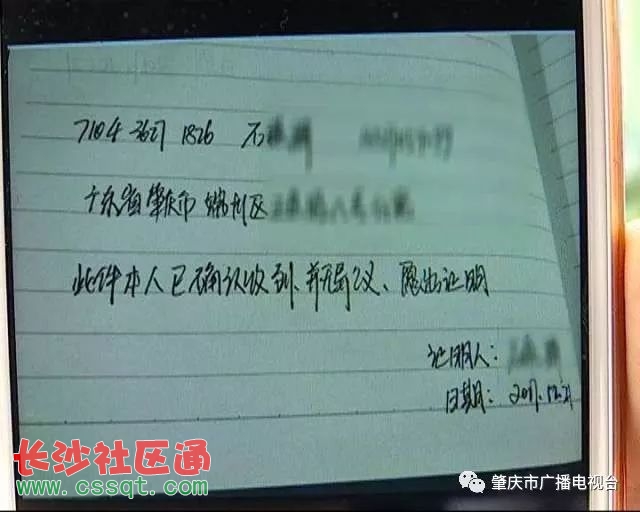 7184 3627 1826 石
广东省肇庆市端州区
此件本人已确认收到、并无异议、愿出证明
证明人:
日期: 2017.12.21
长沙社区通
www.cssqt.com
肇庆市广播电视台